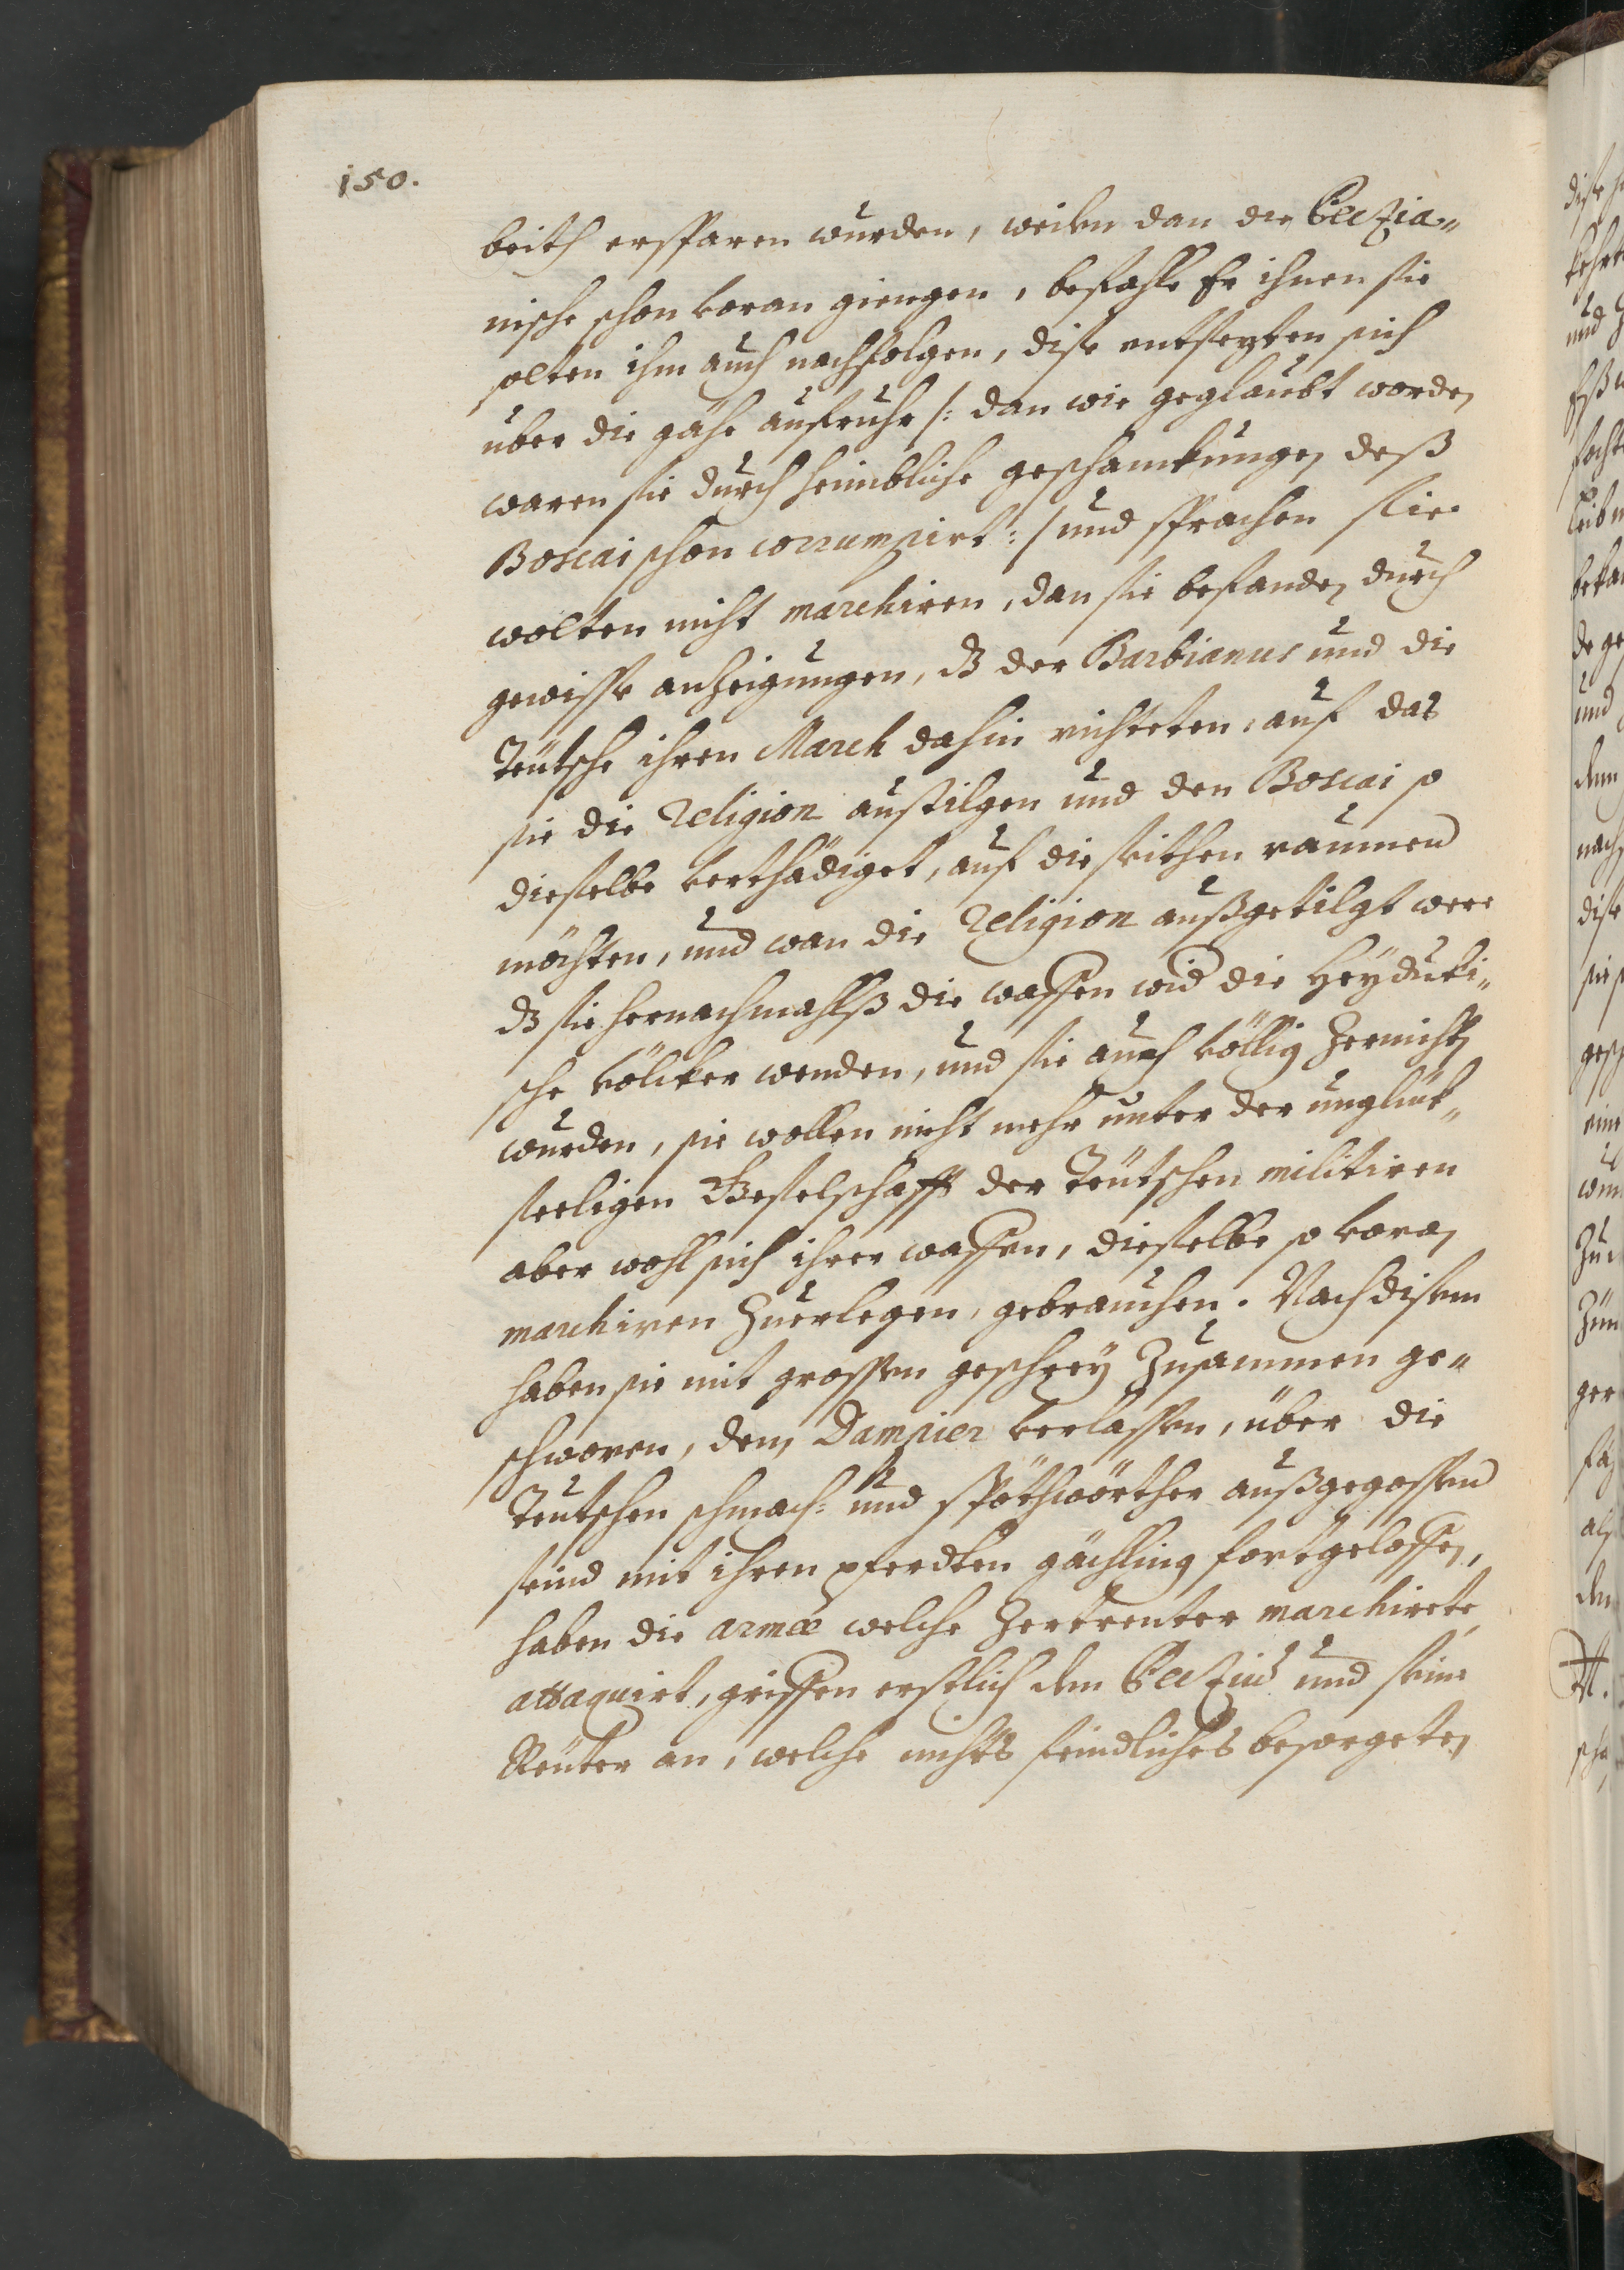 150.
beith ersparen wurden, weilen dan die Peezia„
nische schon voran giengen, befahle Er ihnen sie
solten ihm auch nachfolgen, dise entsezten sich
uber die gähe aufruhr /: dan wie geglaubt worden
waren sie durch heimbliche geschanckungen deß
Boscai schon corrumpirt :/ und sprachen sie
wolten nicht marchiren, dan sie befanden durch
gewisse anzeigungen, dß der Barbianus und die
Teutsche ihren March dahin richteten, auf das
sie die Religion austilgen und den Boscai so
dieselbe verthädiget, auf die seithen raumen
möchten, und wan die Religion außgetilgt were
dß sie hernachmahlß die waffen wid die Heyducki„
sche völcker wenden, und sie auch völlig zernichten
wurden, sie wollen nicht mehr unter der unglück„
seeligen Geselschafft der Teutschen militiren
aber wohl sich ihrer waffen, dieselbe so voran
marchiren zuerlegen, gebrauchen. Nach disem
haben sie mit grossen geschrey zusammen ge„
schworen, den Dampier verlassen, über die
Teutschen schmach: und spöthwörther außgegossen
seind mit ihren pferdten gächling fortgeloffen,
haben die armée welche zertrenter marchirete
attaquirt, griffen erstlich den Peezius und seine
Reuter an, welche nichts feindliches besorgeten